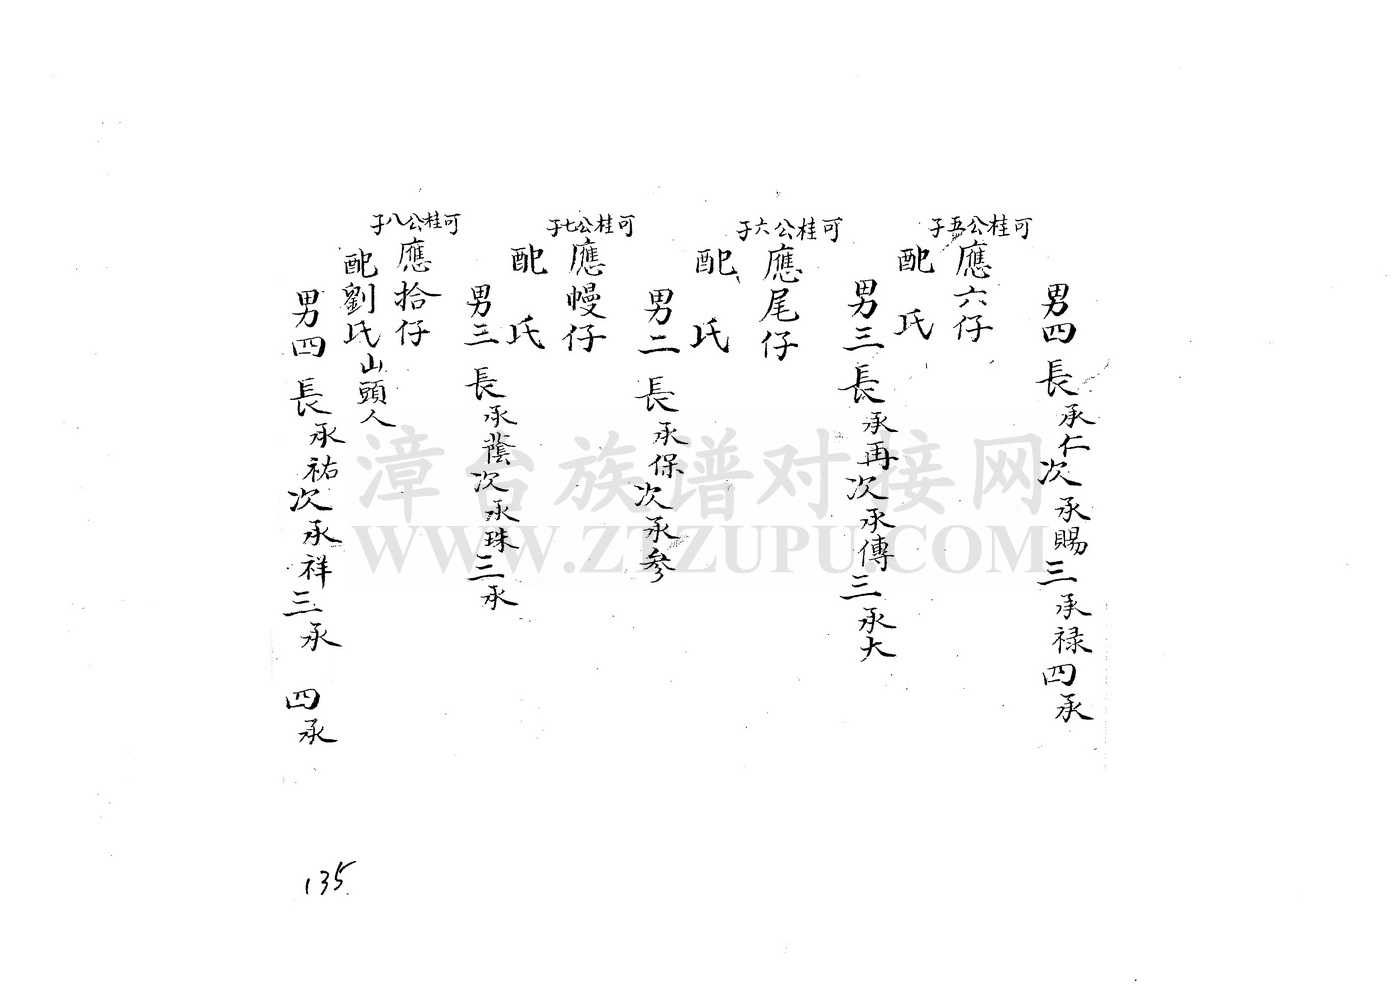 男四 長承仁次承賜三承禄四承
可桂公五子
應六仔
配 氏
男三 長承再次承傳三承大
可桂公六子
應尾仔
配 氏
男二 長承保次承參
可桂公七子
應幔仔
配 氏
男三 長承蔭次承珠三承
可桂公八子
應拾仔
配劉氏山頭人
男四 長承祐次承祥三承 四承
135
漳台族谱对接网
WWW.ZTZUPU.COM